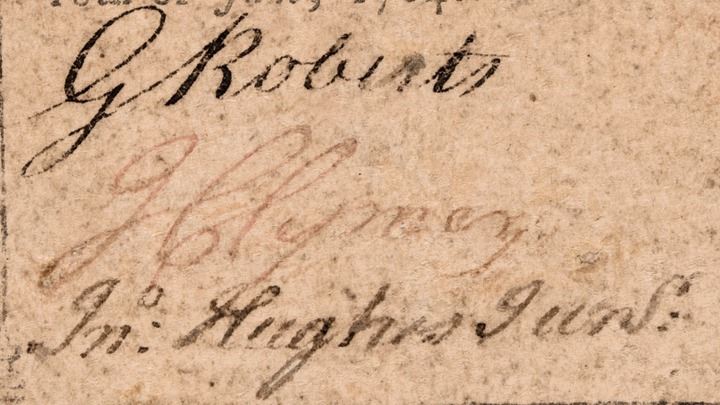 G Roberts
J Clymer
Jnº: Hughes Junr.